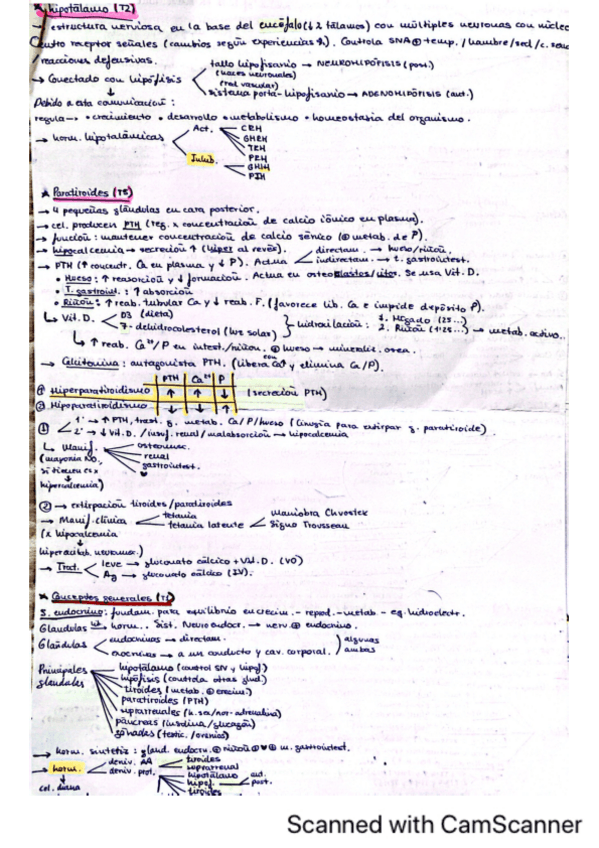 ★ Hipotálamo (T2)
→ estructura nerviosa en la base del encéfalo (↓ 2 tálamos) con múltiples neuronas con núcleo
Centro receptor señales (cambios según experiencias). Controla SNA ⊕ temp. / hambre/sed /
/reacciones defensivas.
→ Conectado con hipófisis
tallo hipofisario → NEUROHIPÓFISIS (post.)
(haces neuronales)
(red vascular)
sistema porta-hipofisario → ADENOHIPÓFISIS (ant.)
Debido a esta comunicación:
regula → • crecimiento • desarrollo • metabolismo • homeostasia del organismo.
→ horm. hipotalámicas
Act.
CRH
GHRH
TRH
PRH
Inhib.
GHIH
PIH
★ Paratiroides (T5)
→ 4 pequeñas glándulas en cara posterior.
→ cel. producen PTH (reg. x concentración de calcio iónico en plasma).
→ función: mantener concentración de calcio sérico (⊕ metab. de P).
→ hipocalcemia → secreción ↑ (hiper al revés).
→ PTH (↑ concentr. Ca en plasma y ↓ P). Actúa
directam. → hueso/riñón.
indirectam. → t. gastrointest.
• Hueso: ↑ reasorción y ↓ formación. Actúa en osteoblastos/citos. Se usa Vit. D.
• T. gastroint.: ↑ absorción
• Riñón: ↑ reab. tubular Ca y ↓ reab. F. (favorece lib. Ca e impide depósito P).
↳ Vit. D.
D3 (dieta)
7-dehidrocolesterol (luz solar)
hidroxilación:
1. Hígado (25...)
2. Riñón (1'25...)
→ metab. activo..
↳ ↑ reab. Ca²⁺/P en intest./riñón. ⊕ hueso → mineraliz. ósea.
→ Calcitonina: antagonista PTH. (libera Ca y elimina Ca/P).
PTH | Ca²⁺ | P
① Hiperparatiroidismo ↑ ↑ ↓ (secreción PTH)
② Hipoparatiroidismo ↓ ↓ ↑
①
1º → ↑ PTH, trast. g. metab. Ca/P/hueso (cirugía para extirpar g. paratiroide)
2º → ↓ Vit. D. /insuf. renal/malabsorción → hipocalcemia
↳ Manif.
osteomusc.
renal
gastrointest.
(mayoría NO,
si tienen es x
hipercalcemia)
② → extirpación tiroides/paratiroides
→ Manif. clínica
tetania
tetania latente
Maniobra Chvostek
Signo Trousseau
(x hipocalcemia
hiperexcitab. neuromusc.)
→ Trat.
leve → gluconato cálcico + Vit. D. (VO)
Ag → gluconato cálcico (IV).
★ Conceptos generales (T1)
S. endocrino: fundam. para equilibrio en crecim.- reprod.-metab.- eq. hidroelectr.
Glándulas → horm.. Sist. Neuroendocr. → nerv. ⊕ endocrino.
Glándulas
endocrinas → directam.
exocrinas → a un conducto y cav. corporal.
algunas
ambas
Principales
glándulas
hipotálamo (control SN y hipóf.)
hipófisis (controla otras gland.)
tiroides (metab. ⊕ crecim.)
paratiroides (PTH)
suprarrenales (h. sex/nor-adrenalina)
páncreas (insulina/glucagón)
gónadas (testíc./ovarios)
→ horm. sintetiz: gland. endocrin. ⊕ riñón ⊕ ♥ ⊕ m. gastrointest.
→ horm.
deriv. AA
tiroides
suprarrenal
deriv. prot.
hipotálamo
hipóf.
ant.
post.
tiroides
↓
cel. diana
Scanned with CamScanner